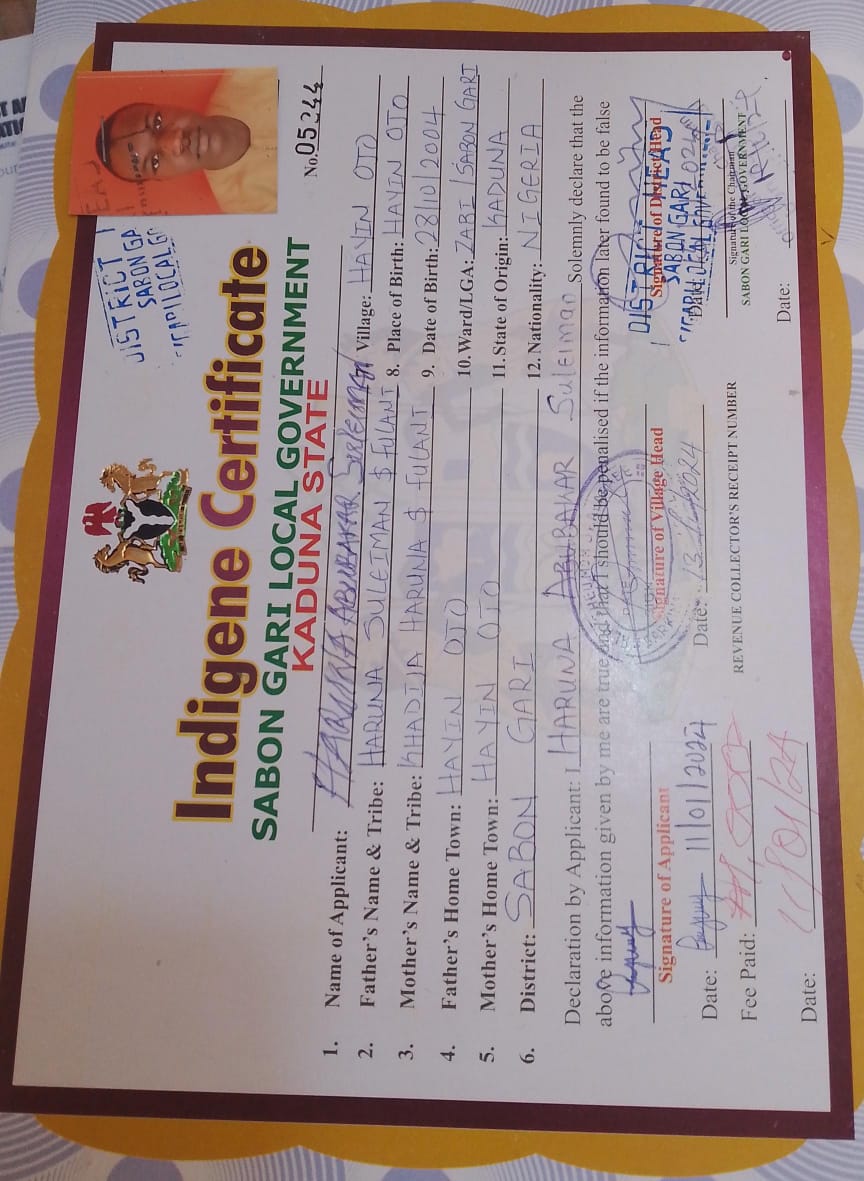 Indigene Certificate
SABON GARI LOCAL GOVERNMENT
KADUNA STATE
No. 05244
DISTRICT HEAD
SABON GA
1. Name of Applicant: HARUNA ABUBAKAR Suleiman
2. Father's Name & Tribe: HARUNA SULEIMAN $ FULANI
3. Mother's Name & Tribe: KHADIJA HARUNA $ FULANI
4. Father's Home Town: HAYIN OJO
5. Mother's Home Town: HAYIN OJO
6. District: SABON GARI
7. Village: HAYIN OJO
8. Place of Birth: HAYIN OJO
9. Date of Birth: 28/10/2004
10. Ward/LGA: ZABI/SABON GARI
11. State of Origin: KADUNA
12. Nationality: NIGERIA
Declaration by Applicant: I HARUNA ABUBAKAR Suleiman Solemnly declare that the
above information given by me are true and that I should be penalised if the information later found to be false
Signature of Applicant
Date: 11/01/2024
Signature of Village Head
Date:
Signature of District Head
DISTRICT HEAD
SABON GARI
Date:
Fee Paid:
Date: 11/01/24
REVENUE COLLECTOR'S RECEIPT NUMBER
Signature of the Chairman
SABON GARI LOCAL GOVERNMENT
Date: